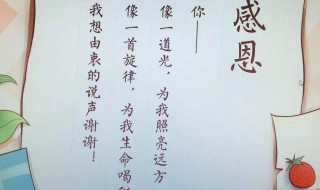 感恩
你——
像一道光，为我照亮远方
像一首旋律，为我生命喝
我想由衷的说声谢谢！